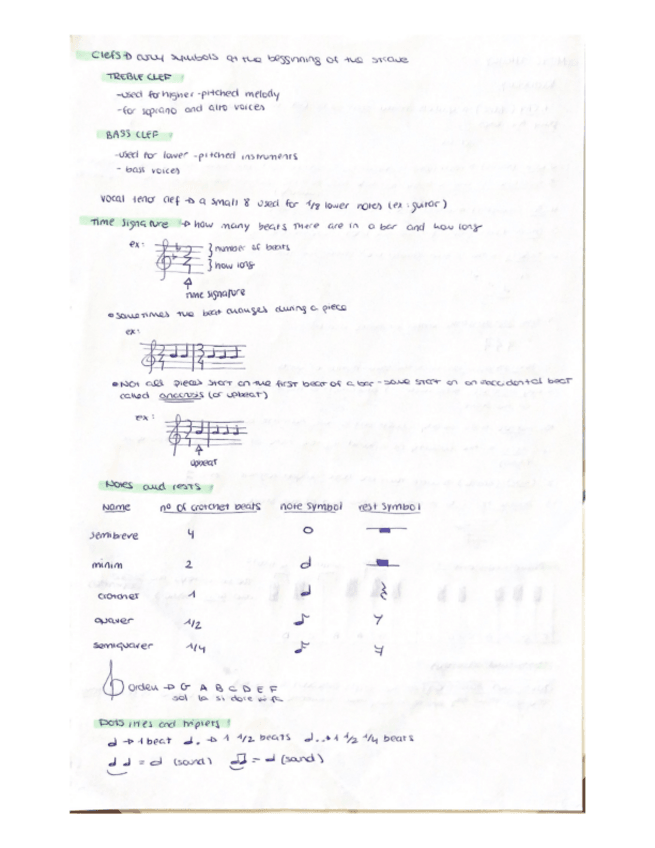 Clefs → curly symbols at the beggining of the stave
TREBLE CLEF
-used for higher-pitched melody
-for soprano and alto voices
BASS CLEF
-used for lower-pitched instruments
- bass voices
vocal tenor clef → a small 8 used for 1/8 lower notes (ex: guitar)
Time signature → how many beats there are in a bar and how long
ex: } number of beats
} how long
time signature
• sometimes the beat changes during a piece
ex:
• Not all pieces start on the first beat of a bar - some start on an accidental beat
called anacrusis (or upbeat)
ex:
upbeat
Notes and rests
Name nº of crotchet beats note symbol rest symbol
semibreve 4
minim 2
crotchet 1
quaver 1/2
semiquaver 1/4
order → G A B C D E F
sol la si do re mi fa
Dots, ties and triplets
→ 1 beat . → 1 1/2 beats .. → 1 1/2 1/4 beats
= (sound) = (sound)